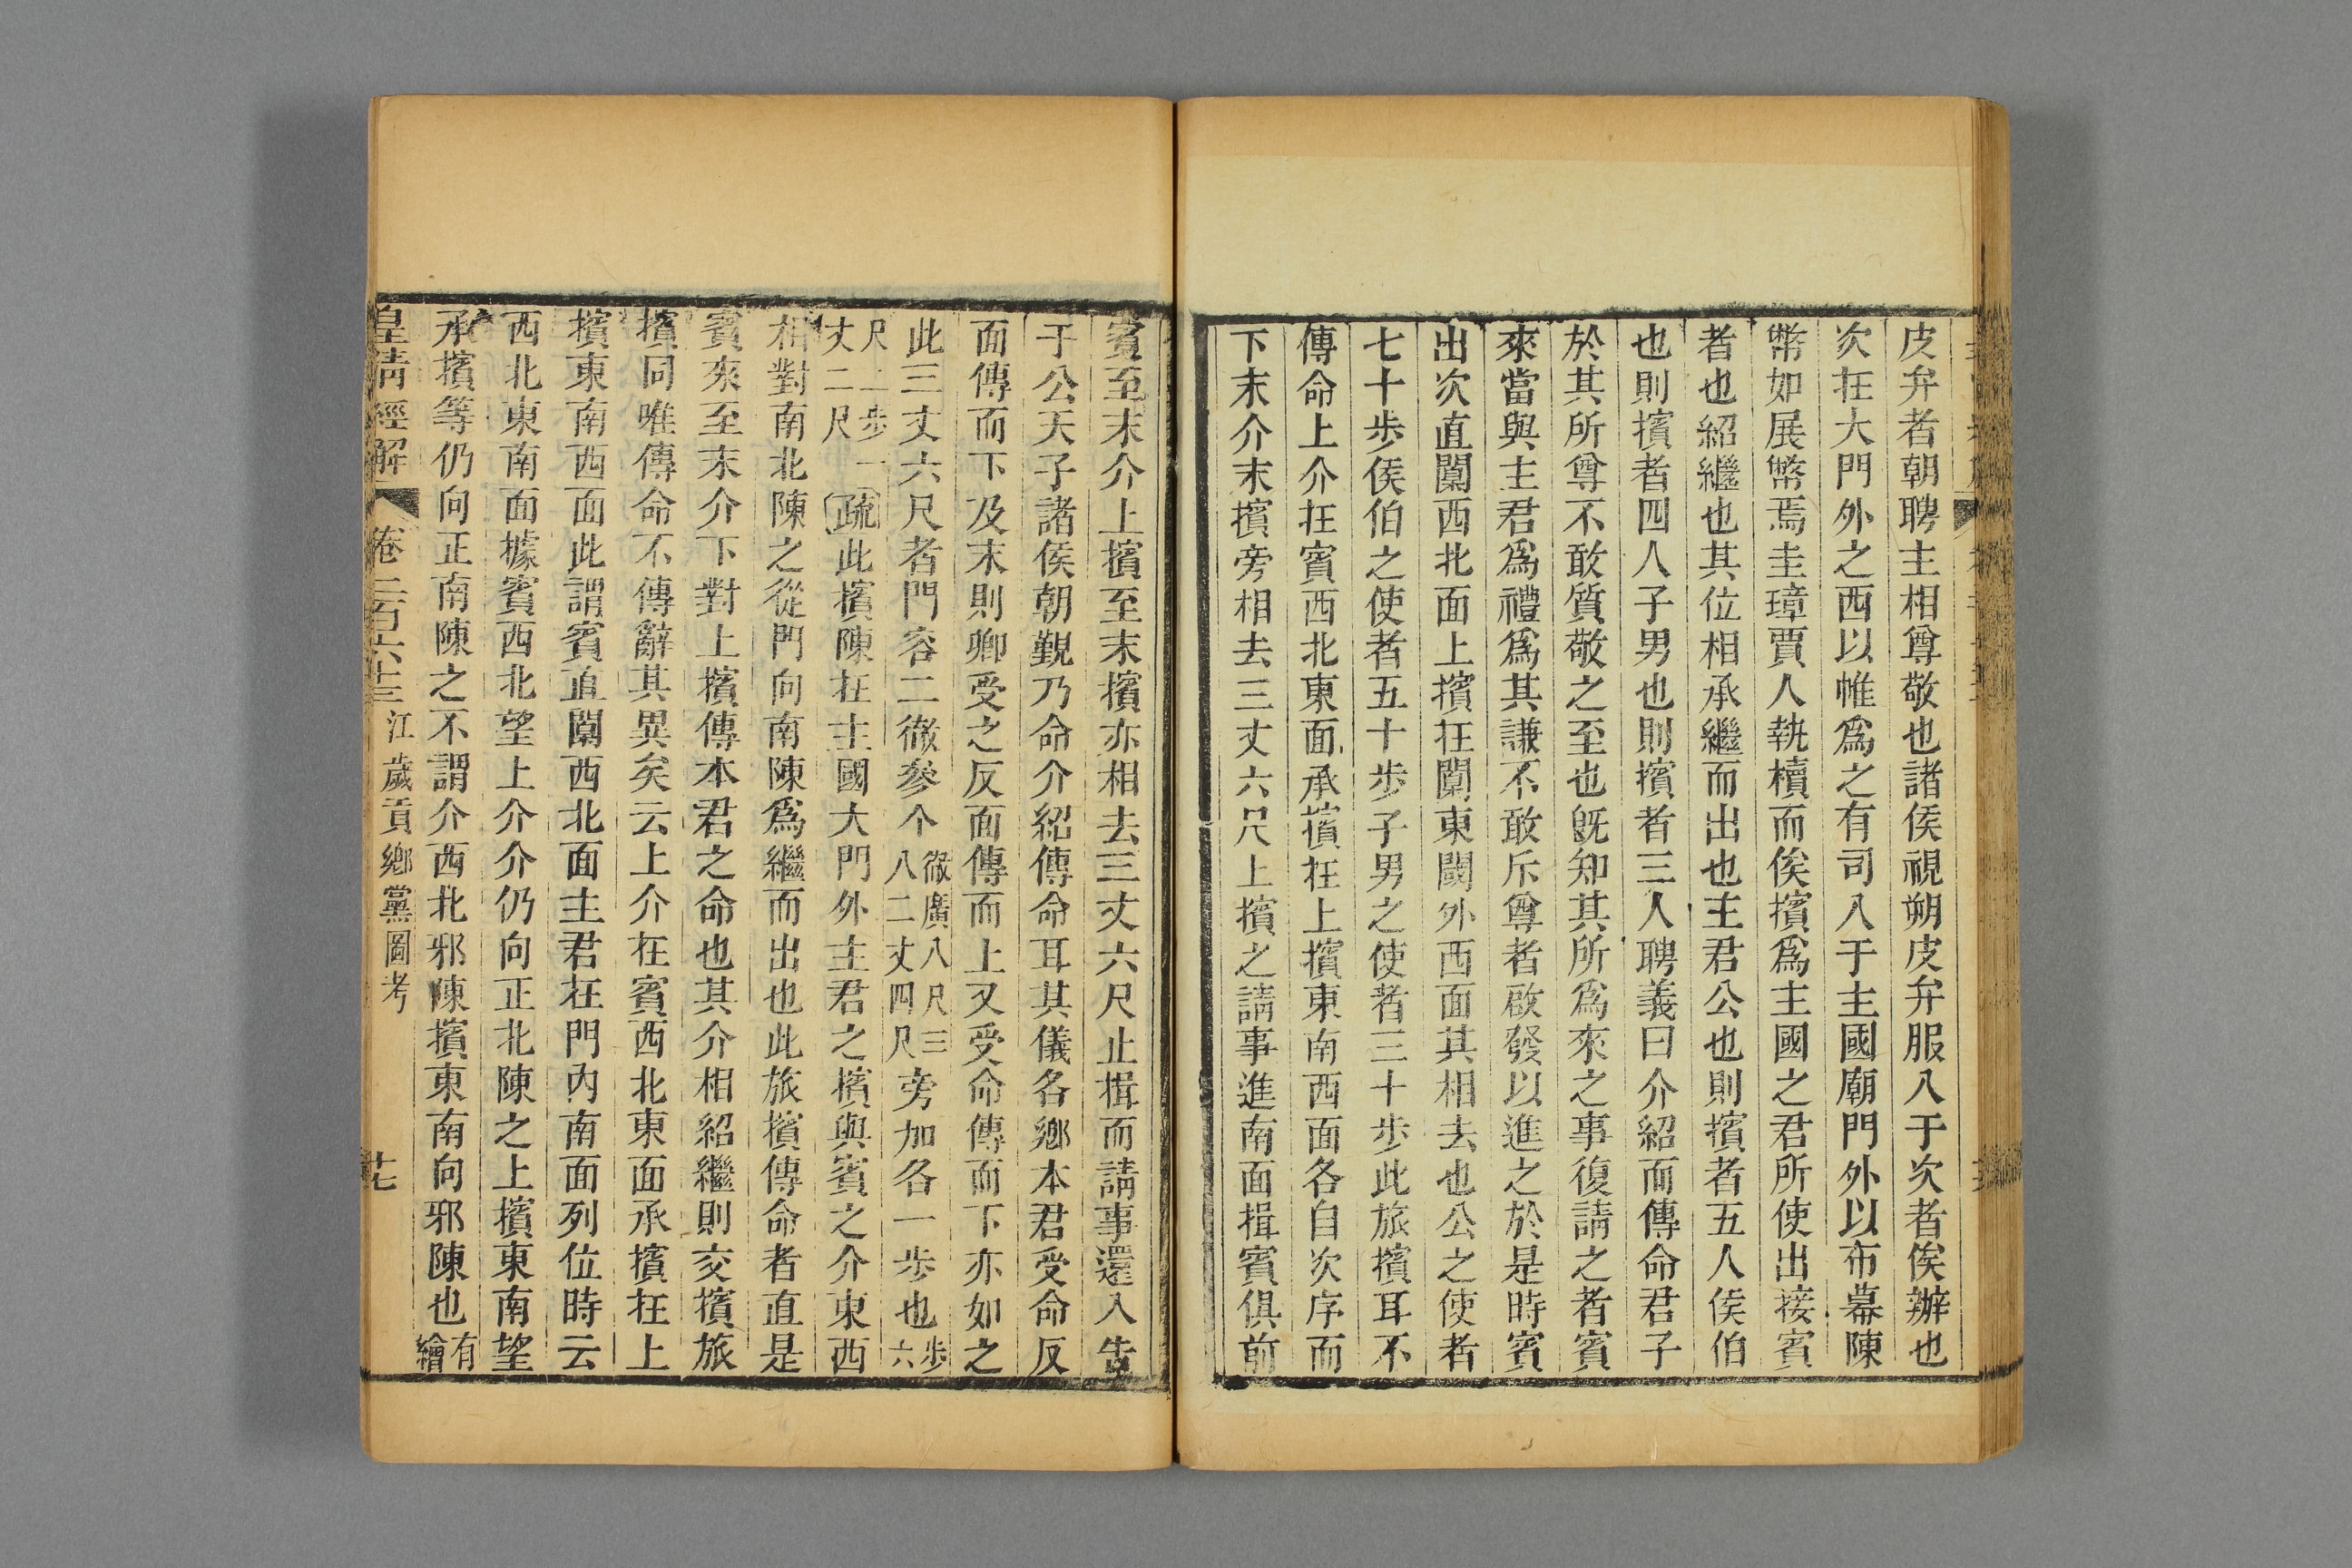 皮弁者朝聘主相尊敬也諸侯視朔皮弁服入于次者俟辦也
次在大門外之西以帷爲之有司入于主國廟門外以布幕陳
幣如展幣焉圭璋賈人執櫝而俟擯爲主國之君所使出接賓
者也紹繼也其位相承繼而出也主君公也則擯者五人侯伯
也則擯者四人子男也則擯者三人聘義曰介紹而傳命君子
於其所尊不敢質敬之至也旣知其所爲來之事復請之者賓
來當與主君爲禮爲其謙不敢斥尊者啟發以進之於是時賓
出次直闑西北面上擯在闑東閾外西面其相去也公之使者
七十步侯伯之使者五十步子男之使者三十步此旅擯耳不
傳命上介在賓西北東面承擯在上擯東南西面各自次序而
下末介末擯旁相去三丈六尺上擯之請事進南面揖賓俱前
賓至末介上擯至末擯亦相去三丈六尺止揖而請事還入告
于公天子諸侯朝覲乃命介紹傳命耳其儀各鄉本君受命反
面傳而下及末則鄉受之反面傳而上又受命傳而下亦如之
此三丈六尺者門容二徹參个徹廣八尺三八二丈四尺旁加各一步也步六
尺二步一丈二尺疏此擯陳在主國大門外主君之擯與賓之介東西
相對南北陳之從門向南陳爲繼而出也此旅擯傳命者直是
賓來至末介下對上擯傳本君之命也其介相紹繼則交擯旅
擯同唯傳命不傳辭其異矣云上介在賓西北東面承擯在上
擯東南西面此謂賓直闑西北面主君在門內南面列位時云
西北東南面據賓西北望上介介仍向正北陳之上擯東南望
承擯等仍向正南陳之不謂介西北邪陳擯東南向邪陳也有繪
皇清經解 卷二百六十三 江歲貢鄉黨圖考 十七